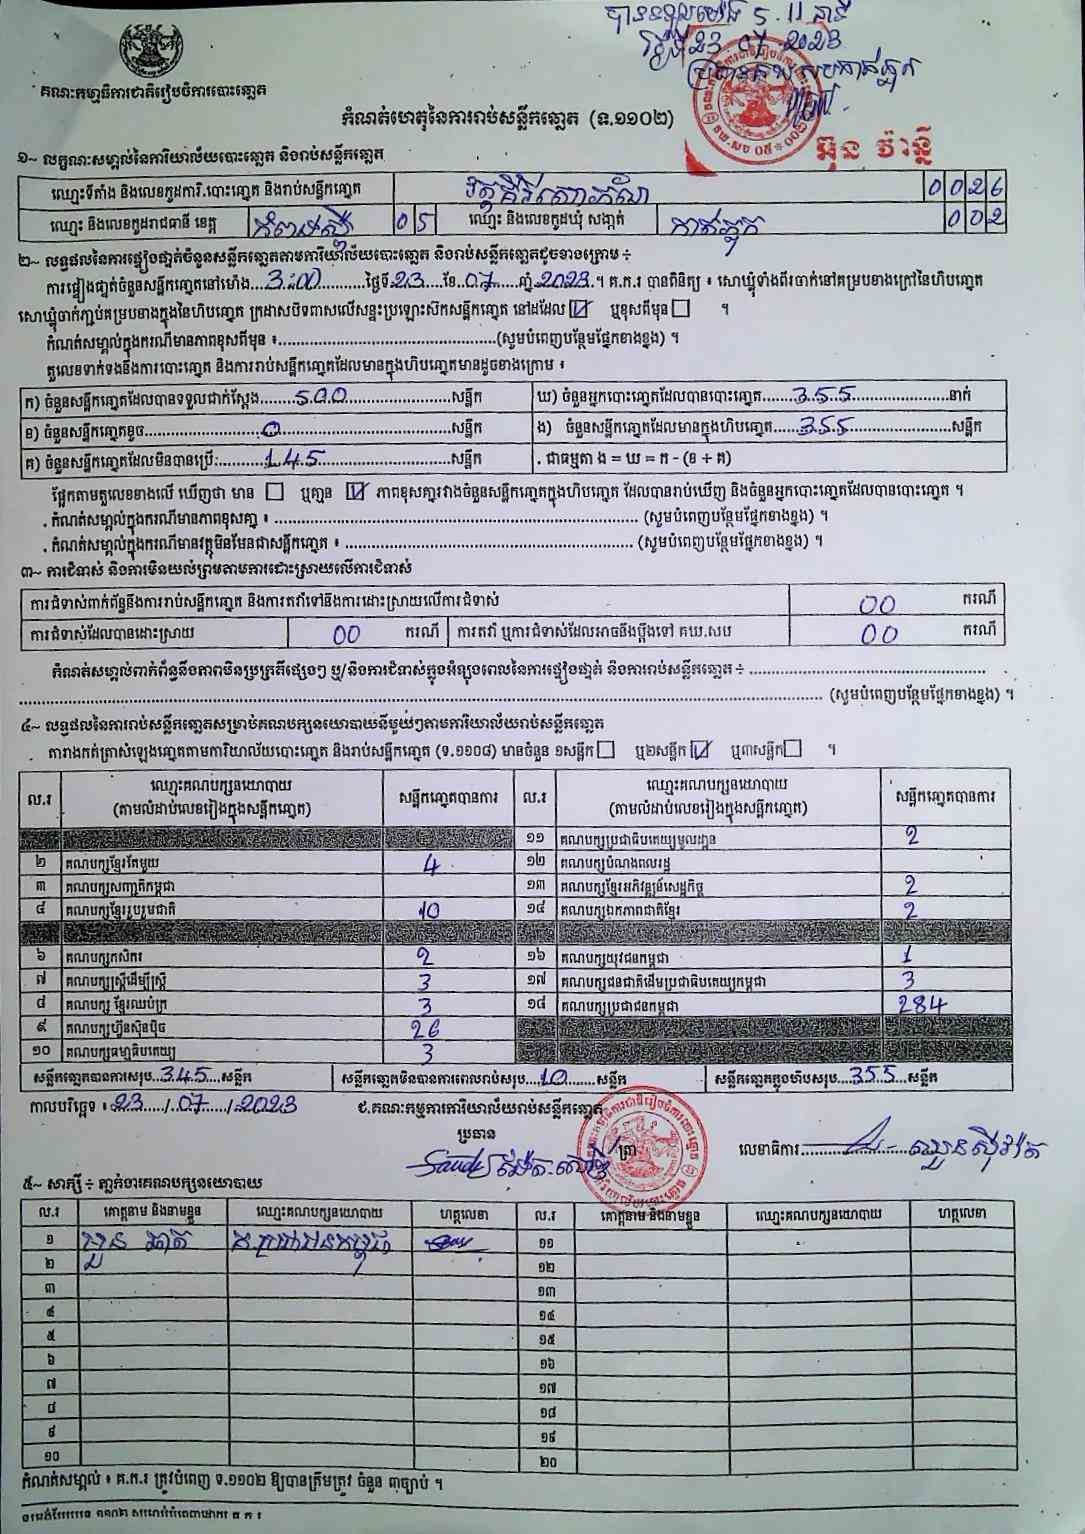 បានទទួលម៉ោង 5.11 នាទី
ថ្ងៃទី23 07 2023
គណៈកម្មាធិការជាតិរៀបចំការបោះឆ្នោត
កំណត់ហេតុនៃការរាប់សន្លឹកឆ្នោត (ទ.១១០២)
អ៊ុន វ៉ាន្នី
១~ លក្ខណៈសម្គាល់នៃការិយាល័យបោះឆ្នោត និងរាប់សន្លឹកឆ្នោត
ឈ្មោះទីតាំង និងលេខកូដការិ.បោះឆ្នោត និងរាប់សន្លឹកឆ្នោត វត្តគិរី 0026
ឈ្មោះ និងលេខកូដរាជធានី ខេត្ត កំពង់ស្ពឺ 05 ឈ្មោះ និងលេខកូដឃុំ សង្កាត់ 002
២~ លទ្ធផលនៃការផ្ទៀងផ្ទាត់ចំនួនសន្លឹកឆ្នោតតាមការិយាល័យបោះឆ្នោត និងរាប់សន្លឹកឆ្នោតដូចខាងក្រោម ÷
ការផ្ទៀងផ្ទាត់ចំនួនសន្លឹកឆ្នោតនៅម៉ោង...3:00.......ថ្ងៃទី23.....ខែ.07.....ឆ្នាំ.2023.។ គ.ក.រ បានពិនិត្យ ៖ សោឃ្លុំទាំងពីរចាក់នៅគម្របខាងក្រៅនៃហិបឆ្នោត
សោឃ្លុំចាក់ភ្ជាប់គម្របខាងក្នុងនៃហិបឆ្នោត ក្រដាសបិទពាសលើសន្ទះប្រឡោះសិកសន្លឹកឆ្នោត នៅដដែល ☑ ឬខុសពីមុន ☐ ។
កំណត់សម្គាល់ក្នុងករណីមានភាពខុសពីមុន ៖..............................(សូមបំពេញបន្ថែមផ្នែកខាងខ្នង) ។
តួលេខទាក់ទងនឹងការបោះឆ្នោត និងការរាប់សន្លឹកឆ្នោតដែលមានក្នុងហិបឆ្នោតមានដូចខាងក្រោម ៖
ក) ចំនួនសន្លឹកឆ្នោតដែលបានទទួលជាក់ស្តែង......500......សន្លឹក ឃ) ចំនួនអ្នកបោះឆ្នោតដែលបានបោះឆ្នោត......355......នាក់
ខ) ចំនួនសន្លឹកឆ្នោតខូច......0......សន្លឹក ង) ចំនួនសន្លឹកឆ្នោតដែលមានក្នុងហិបឆ្នោត......355......សន្លឹក
គ) ចំនួនសន្លឹកឆ្នោតដែលមិនបានប្រើ:......145......សន្លឹក . ជាធម្មតា ង = ឃ = ក - (ខ + គ)
ផ្អែកតាមតួលេខខាងលើ ឃើញថា មាន ☐ ឬគ្មាន ☑ ភាពខុសគ្នារវាងចំនួនសន្លឹកឆ្នោតក្នុងហិបឆ្នោត ដែលបានរាប់ឃើញ និងចំនួនអ្នកបោះឆ្នោតដែលបានបោះឆ្នោត ។
. កំណត់សម្គាល់ក្នុងករណីមានភាពខុសគ្នា ៖ .............................. (សូមបំពេញបន្ថែមផ្នែកខាងខ្នង) ។
. កំណត់សម្គាល់ក្នុងករណីមានវត្ថុមិនមែនជាសន្លឹកឆ្នោត ៖ .............................. (សូមបំពេញបន្ថែមផ្នែកខាងខ្នង) ។
៣~ ការជំទាស់ និងការមិនយល់ព្រមតាមការដោះស្រាយលើការជំទាស់
ការជំទាស់ពាក់ព័ន្ធនឹងការរាប់សន្លឹកឆ្នោត និងការតវ៉ាទៅនឹងការដោះស្រាយលើការជំទាស់ 00 ករណី
ការជំទាស់ដែលបានដោះស្រាយ 00 ករណី ការតវ៉ា ឬការជំទាស់ដែលអាចនឹងប្តឹងទៅ គឃ.សប 00 ករណី
កំណត់សម្គាល់ពាក់ព័ន្ធនឹងភាពមិនប្រក្រតីផ្សេងៗ ឬ/និងការជំទាស់ក្នុងអំឡុងពេលនៃការផ្ទៀងផ្ទាត់ និងការរាប់សន្លឹកឆ្នោត ÷ ..............................
.............................. (សូមបំពេញបន្ថែមផ្នែកខាងខ្នង) ។
៤~ លទ្ធផលនៃការរាប់សន្លឹកឆ្នោតសម្រាប់គណបក្សនយោបាយនីមួយៗតាមការិយាល័យរាប់សន្លឹកឆ្នោត
តារាងកត់ត្រាសំឡេងឆ្នោតតាមការិយាល័យបោះឆ្នោត និងរាប់សន្លឹកឆ្នោត (ទ.១១០៨) មានចំនួន ១សន្លឹក ☐ ឬ២សន្លឹក ☑ ឬ៣សន្លឹក ☐ ។
ល.រ ឈ្មោះគណបក្សនយោបាយ (តាមលំដាប់លេខរៀងក្នុងសន្លឹកឆ្នោត) សន្លឹកឆ្នោតបានការ ល.រ ឈ្មោះគណបក្សនយោបាយ (តាមលំដាប់លេខរៀងក្នុងសន្លឹកឆ្នោត) សន្លឹកឆ្នោតបានការ
១១ គណបក្សប្រជាធិបតេយ្យមូលដ្ឋាន 2
២ គណបក្សខ្មែរតែមួយ 4 ១២ គណបក្សបំណងពលរដ្ឋ
៣ គណបក្សសញ្ជាតិកម្ពុជា ១៣ គណបក្សខ្មែរអភិវឌ្ឍន៍សេដ្ឋកិច្ច 2
៤ គណបក្សខ្មែររួបរួមជាតិ 10 ១៤ គណបក្សឯកភាពជាតិខ្មែរ 2
៦ គណបក្សកសិករ 2 ១៦ គណបក្សយុវជនកម្ពុជា 1
៧ គណបក្សស្ត្រីដើម្បីស្ត្រី 3 ១៧ គណបក្សជនជាតិដើមប្រជាធិបតេយ្យកម្ពុជា 3
៨ គណបក្ស ខ្មែរឈប់ក្រ 3 ១៨ គណបក្សប្រជាជនកម្ពុជា 284
៩ គណបក្សហ្វ៊ុនស៊ិនប៉ិច 26
១០ គណបក្សធម្មាធិបតេយ្យ 3
សន្លឹកឆ្នោតបានការសរុប..345..សន្លឹក សន្លឹកឆ្នោតមិនបានការពេលរាប់សរុប...10......សន្លឹក សន្លឹកឆ្នោតក្នុងហិបសរុប..355...សន្លឹក
កាលបរិច្ឆេទ ៖ 23..../..07..../.2023 ជ.គណៈកម្មការការិយាល័យរាប់សន្លឹកឆ្នោត
ប្រធាន
/ត្រា លេខាធិការ..............................
៥~ សាក្សី ÷ ភ្នាក់ងារគណបក្សនយោបាយ
ល.រ គោត្តនាម និងនាមខ្លួន ឈ្មោះគណបក្សនយោបាយ ហត្ថលេខា ល.រ គោត្តនាម និងនាមខ្លួន ឈ្មោះគណបក្សនយោបាយ ហត្ថលេខា
១ គ.ប្រជាជនកម្ពុជា ១១
២ ១២
៣ ១៣
៤ ១៤
៥ ១៥
៦ ១៦
៧ ១៧
៨ ១៨
៩ ១៩
១០ ២០
កំណត់សម្គាល់ ៖ គ.ក.រ ត្រូវបំពេញ ទ.១១០២ ឱ្យបានត្រឹមត្រូវ ចំនួន ៣ច្បាប់ ។